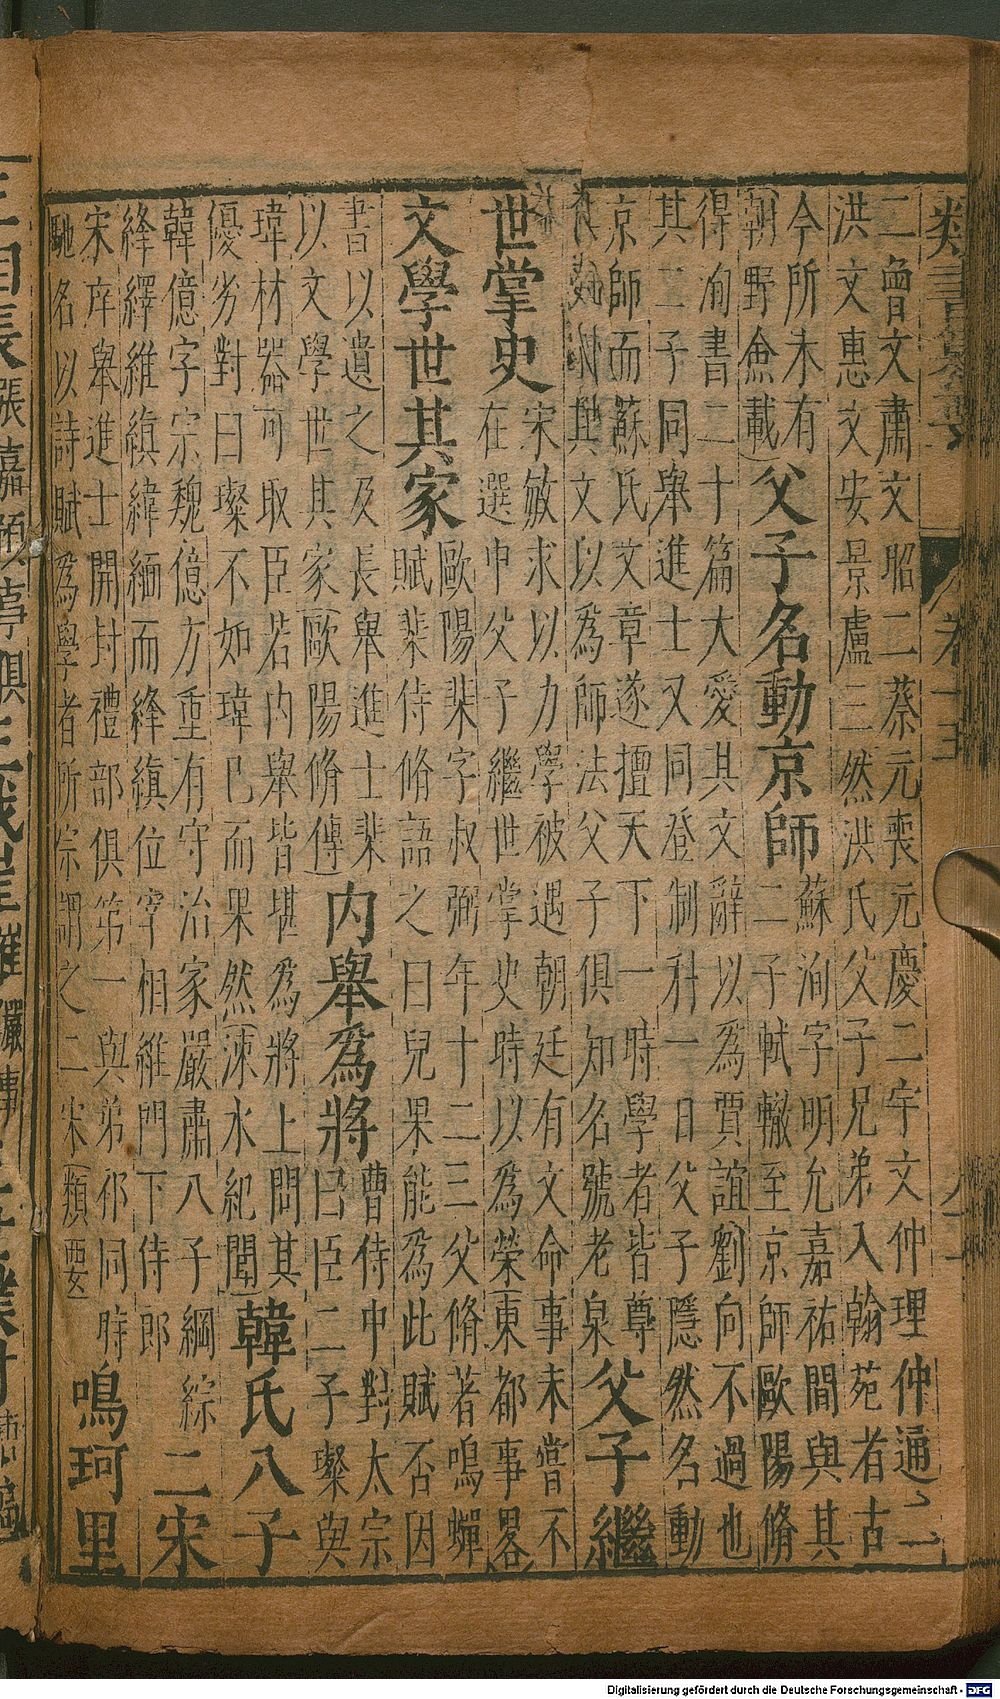 二曾文肅文昭二蔡元長元慶二宇文仲理仲通二
洪文惠文安景盧三然洪氏父子兄弟入翰苑者古
今所未有
朝野僉載
父子名動京師
蘇洵字明允嘉祐間與其
二子軾轍至京師歐陽脩
得洵書二十篇大愛其文辭以為賈誼劉向不過也
其二子同舉進士又同登制科一日父子隱然名動
京師而蘇氏文章遂擅天下一時學者皆尊
其文以為師法父子俱知名號老泉
父子繼
世掌史
宋敏求以力學被遇朝廷有文命事未嘗不
在選中父子繼世掌史時以為榮東都事畧
文學世其家
歐陽棐字叔弼年十二三父脩著鳴蟬
賦棐侍脩語之曰兒果能為此賦否因
書以遺之及長舉進士棐
以文學世其家歐陽脩傳
內舉爲將
曹侍中對太宗
曰臣二子璨與
瑋材器可取臣若內舉皆堪為將上問其
優劣對曰璨不如瑋已而果然涑水紀聞
韓氏八子
韓億字宗魏億方重有守治家嚴肅八子綱綜
絳繹維縝緯緬而絳縝位宰相維門下侍郎
二宋
宋庠舉進士開封禮部俱第一與弟祁同時
馳名以詩賦為學者所宗謂之二宋類要
鳴珂里
Digitalisierung gefördert durch die Deutsche Forschungsgemeinschaft - DFG